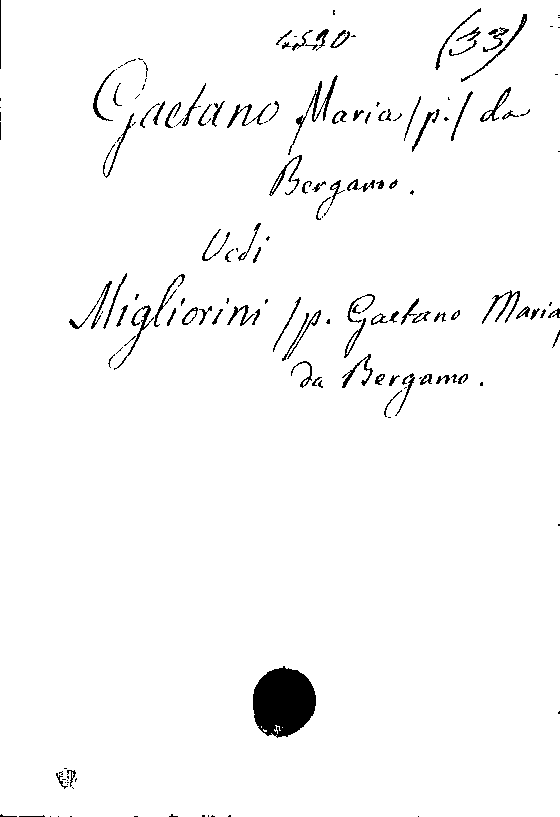 (33)
Gaetano Maria /p./ da
Bergamo.
Vedi
Migliorini /p. Gaetano Maria
da Bergamo.